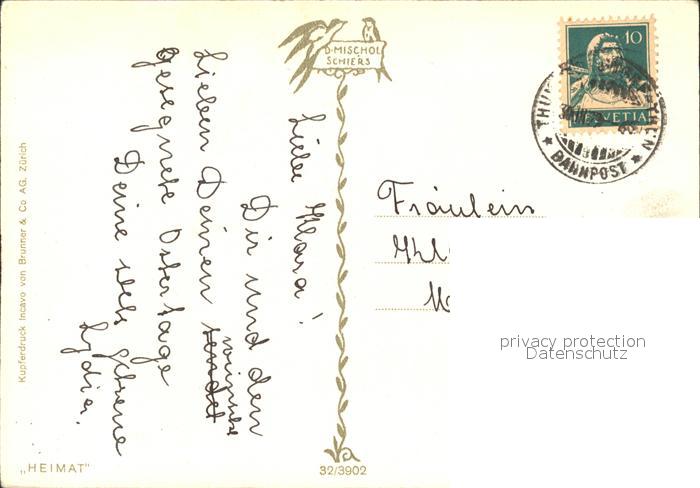 D. MISCHOL
SCHIERS
10
HELVETIA
BAHNPOST
Liebe Klara!
Dir und den
Lieben Deinen sendet
wünscht
gesegnete Ostertage
Deine stets getreue
Lydia.
Fräulein
privacy protection
Datenschutz
Kupferdruck Incavo von Brunner & Co AG. Zürich
„HEIMAT"
32/3902